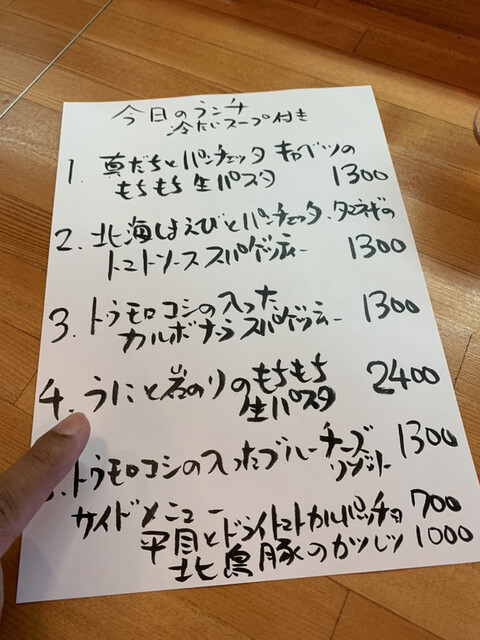 今日のランチ
冷たいスープ付き
1. 真だちとパンチェッタ キャベツの
もちもち生パスタ 1300
2. 北海しまえびとパンチェッタ、タマネギの
トマトソース スパゲッティー 1300
3. トウモロコシの入った
カルボナーラ スパゲッティー 1300
4. うにと岩のりのもちもち
生パスタ 2400
トウモロコシの入ったブルーチーズ
リゾット 1300
サイドメニュー
平目とドライトマトカルパッチョ 700
北島豚のカツレツ 1000